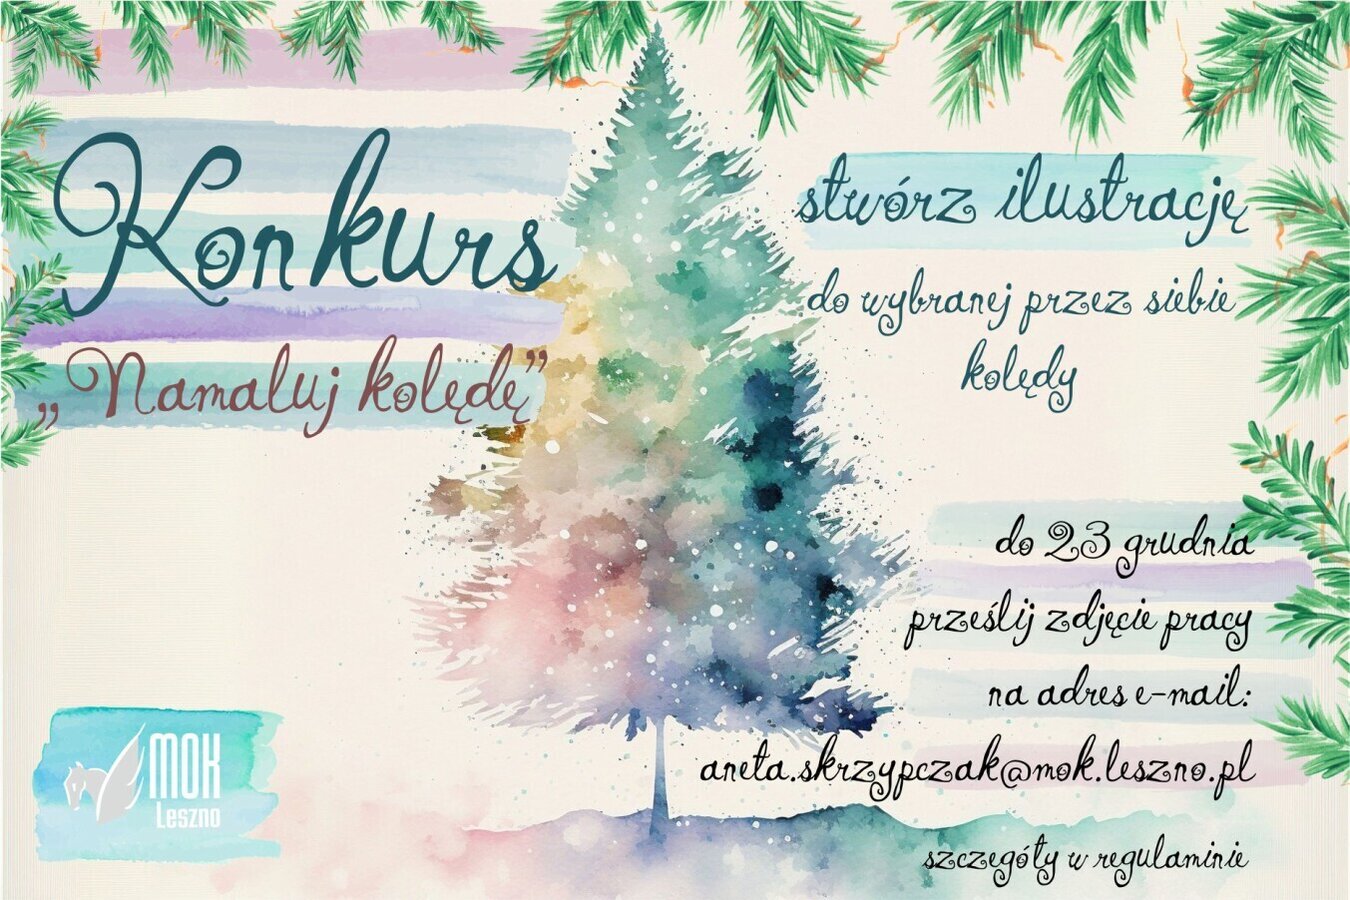 Konkurs
„Namaluj kolędę”
stwórz ilustrację
do wybranej przez siebie
kolędy
do 23 grudnia
prześlij zdjęcie pracy
na adres e-mail:
aneta.skrzypczak@mok.leszno.pl
szczegóły w regulaminie
MOK
Leszno